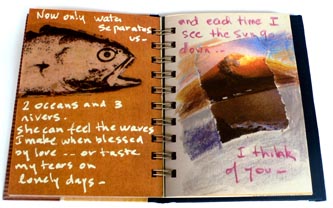 Now only water
separates
us -
2 oceans and 3
rivers.
she can feel the waves
I make when blessed
by love -- or taste
my tears on
lonely days -
and each time I
see the sun go
down --
I think
of you -